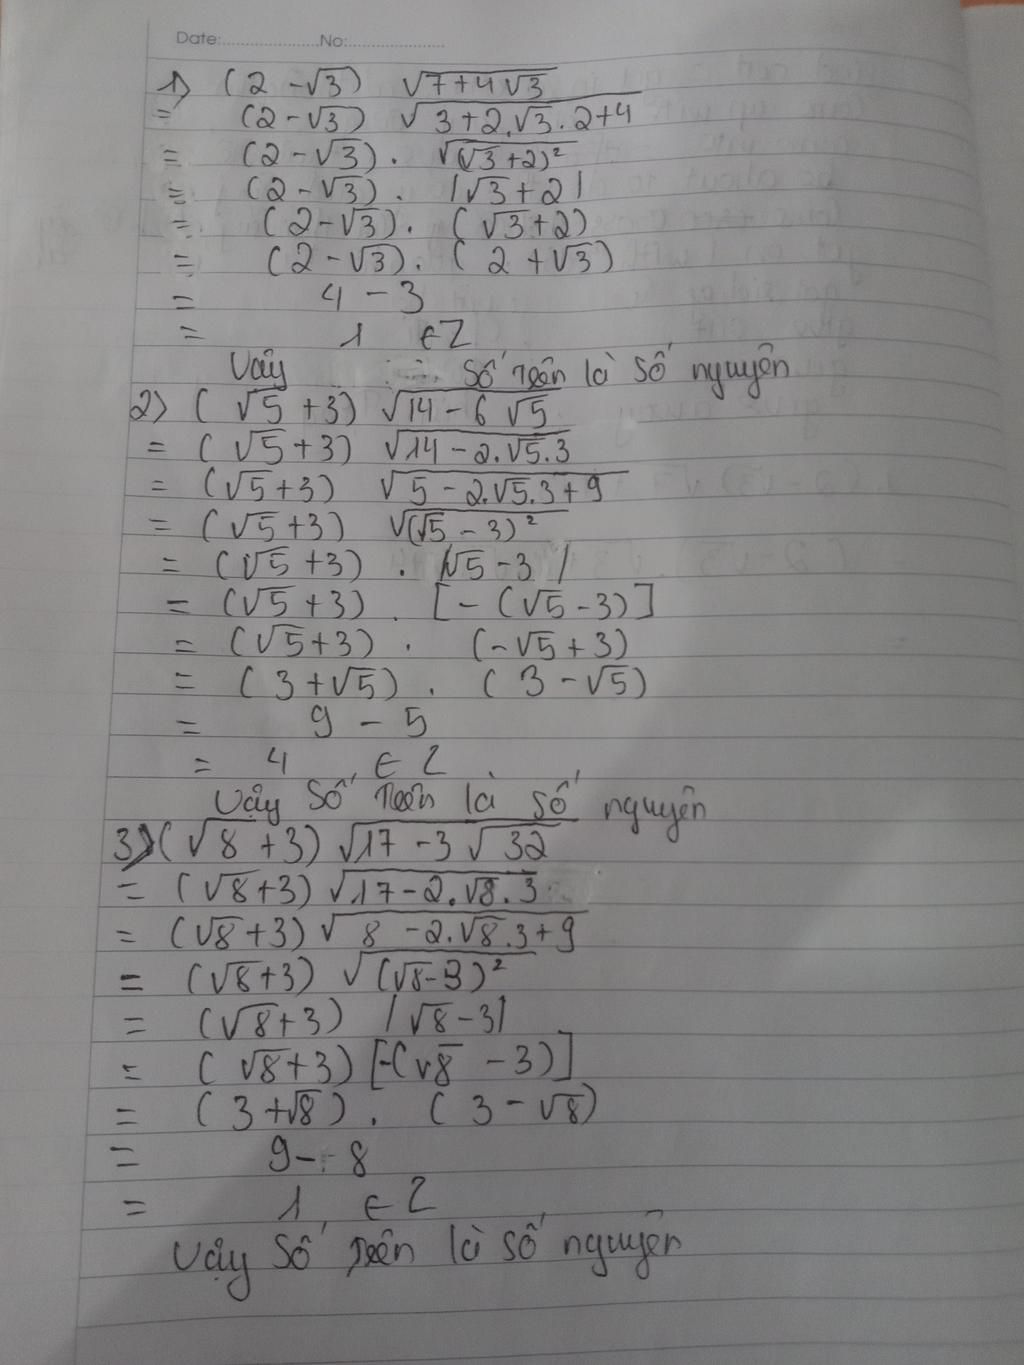 Date:....................No:....................
1) (2 - √3) √7+4√3
= (2 - √3) √3+2.√3.2+4
= (2 - √3) . √(√3+2)²
= (2 - √3) . |√3+2|
= (2 - √3) . (√3+2)
= (2 - √3) . (2 + √3)
= 4 - 3
= 1 ∈ Z
Vậy số trên là số nguyên
2) (√5 + 3) √14 - 6√5
= (√5 + 3) √14 - 2.√5.3
= (√5+3) √5 - 2.√5.3+9
= (√5+3) √(√5 - 3)²
= (√5 +3) . |√5-3|
= (√5 +3) . [-(√5-3)]
= (√5+3) . (-√5+3)
= (3+√5) . (3 -√5)
= 9 - 5
= 4 ∈ Z
Vậy số trên là số nguyên
3) (√8 +3) √17 - 3√32
= (√8+3) √17-2.√8.3
= (√8+3) √8 -2.√8.3+9
= (√8+3) √(√8-3)²
= (√8+3) |√8-3|
= (√8+3) [-(√8 - 3)]
= (3+√8) . (3-√8)
= 9 - 8
= 1 ∈ Z
Vậy số trên là số nguyên